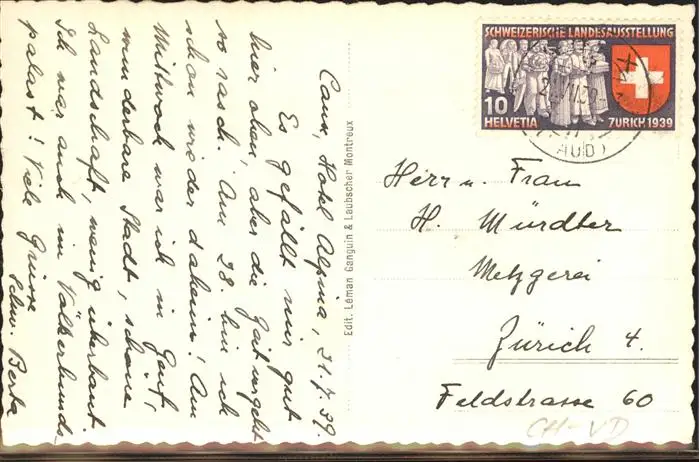 Caux, Hotel Alpina, 21.7.39.
Es gefällt mir gut
hier oben, aber die Zeit vergeht
so rasch. Am 28. bin ich
schon wieder daheim! Am
Mittwoch war ich in Genf,
wunderbare Stadt, schöne
Landschaft, wenig überbaut.
Ich war auch im Völkerbunds
palast! Viele Grüsse
Schw. Berta
Edit. Léman Ganguin & Laubscher Montreux
SCHWEIZERISCHE LANDESAUSSTELLUNG
10
HELVETIA ZÜRICH 1939
AUD)
Herr u. Frau
H. Mürdter
Metzgerei
Zürich 4.
Feldstrasse 60
CH-VD